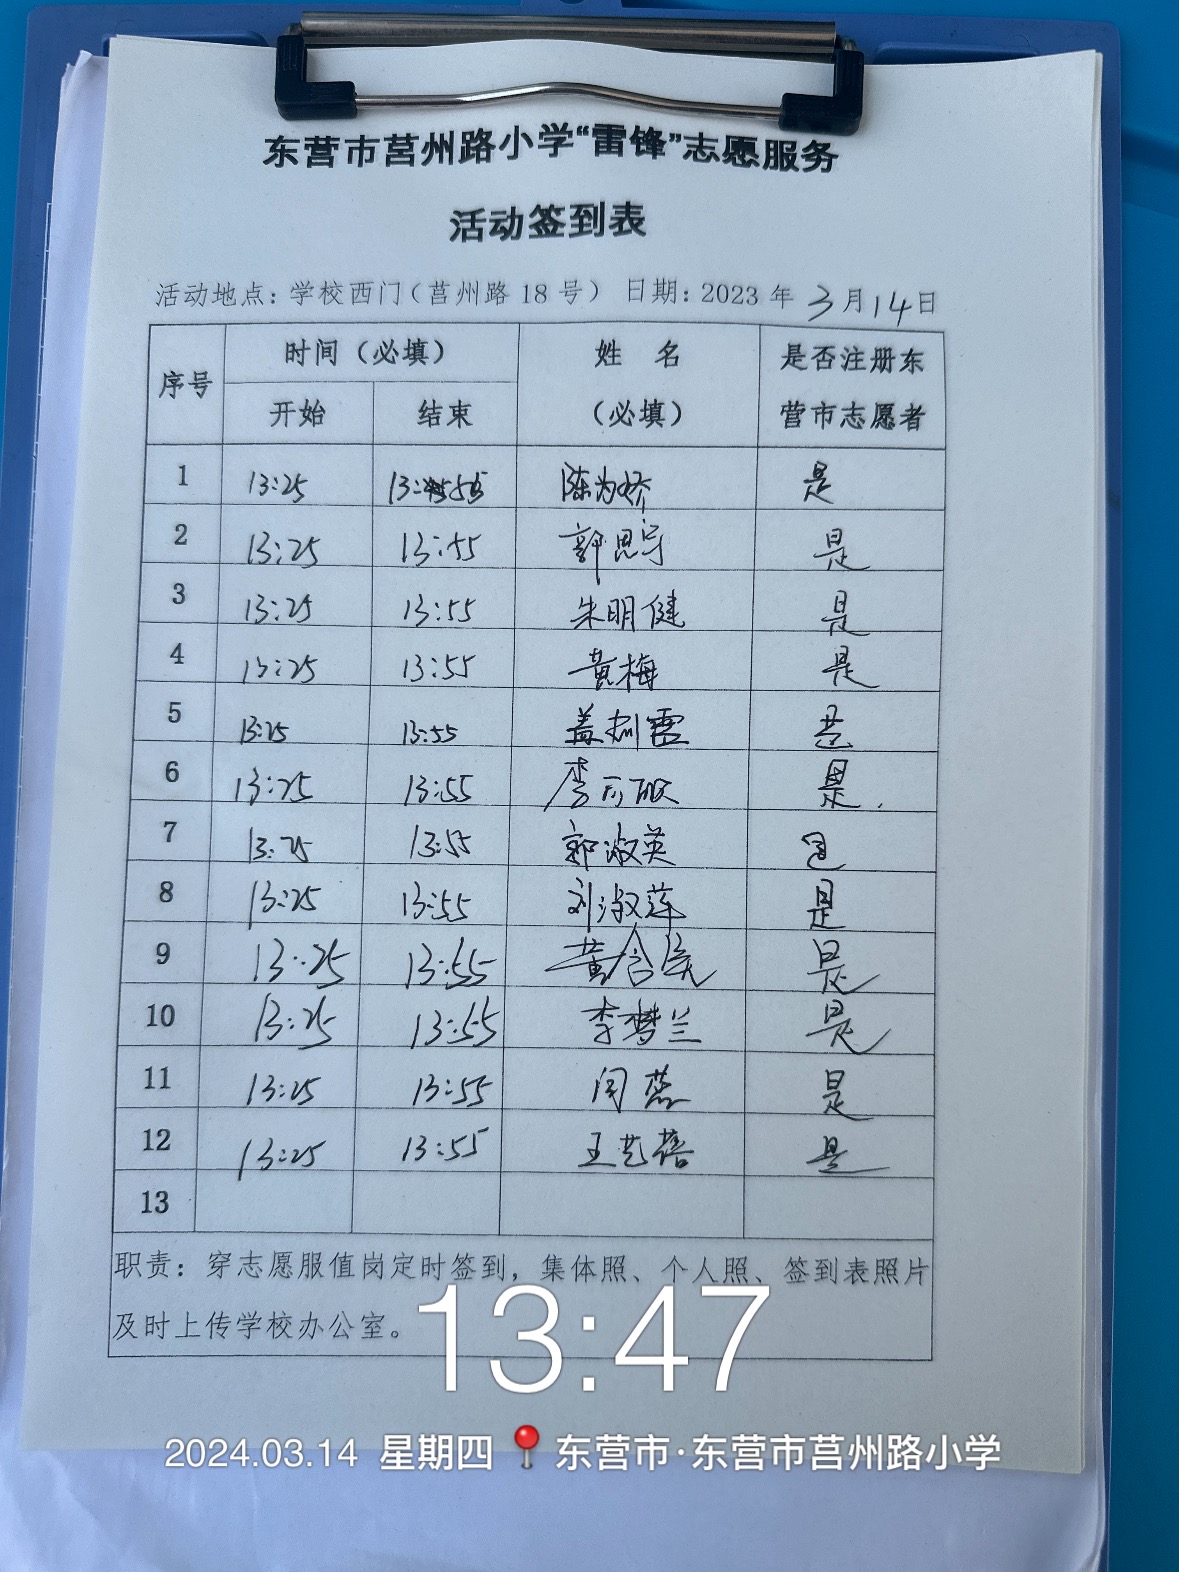 东营市莒州路小学“雷锋”志愿服务
活动签到表
活动地点：学校西门（莒州路 18 号） 日期：2023 年 3 月 14 日
序号 时间（必填） 姓 名 是否注册东
开始 结束 （必填） 营市志愿者
1 13:25 13:55 陈为娇 是
2 13:25 13:55 郭思宇 是
3 13:25 13:55 朱明健 是
4 13:25 13:55 黄梅 是
5 13:25 13:55 盖 雪 是
6 13:25 13:55 李 是
7 13:25 13:55 郭淑英 是
8 13:25 13:55 刘淑莲 是
9 13:25 13:55 黄含 是
10 13:25 13:55 李梦兰 是
11 13:25 13:55 闫燕 是
12 13:25 13:55 王艺蓓 是
13
职责：穿志愿服值岗定时签到，集体照、个人照、签到表照片
及时上传学校办公室。
13:47
2024.03.14 星期四 东营市·东营市莒州路小学